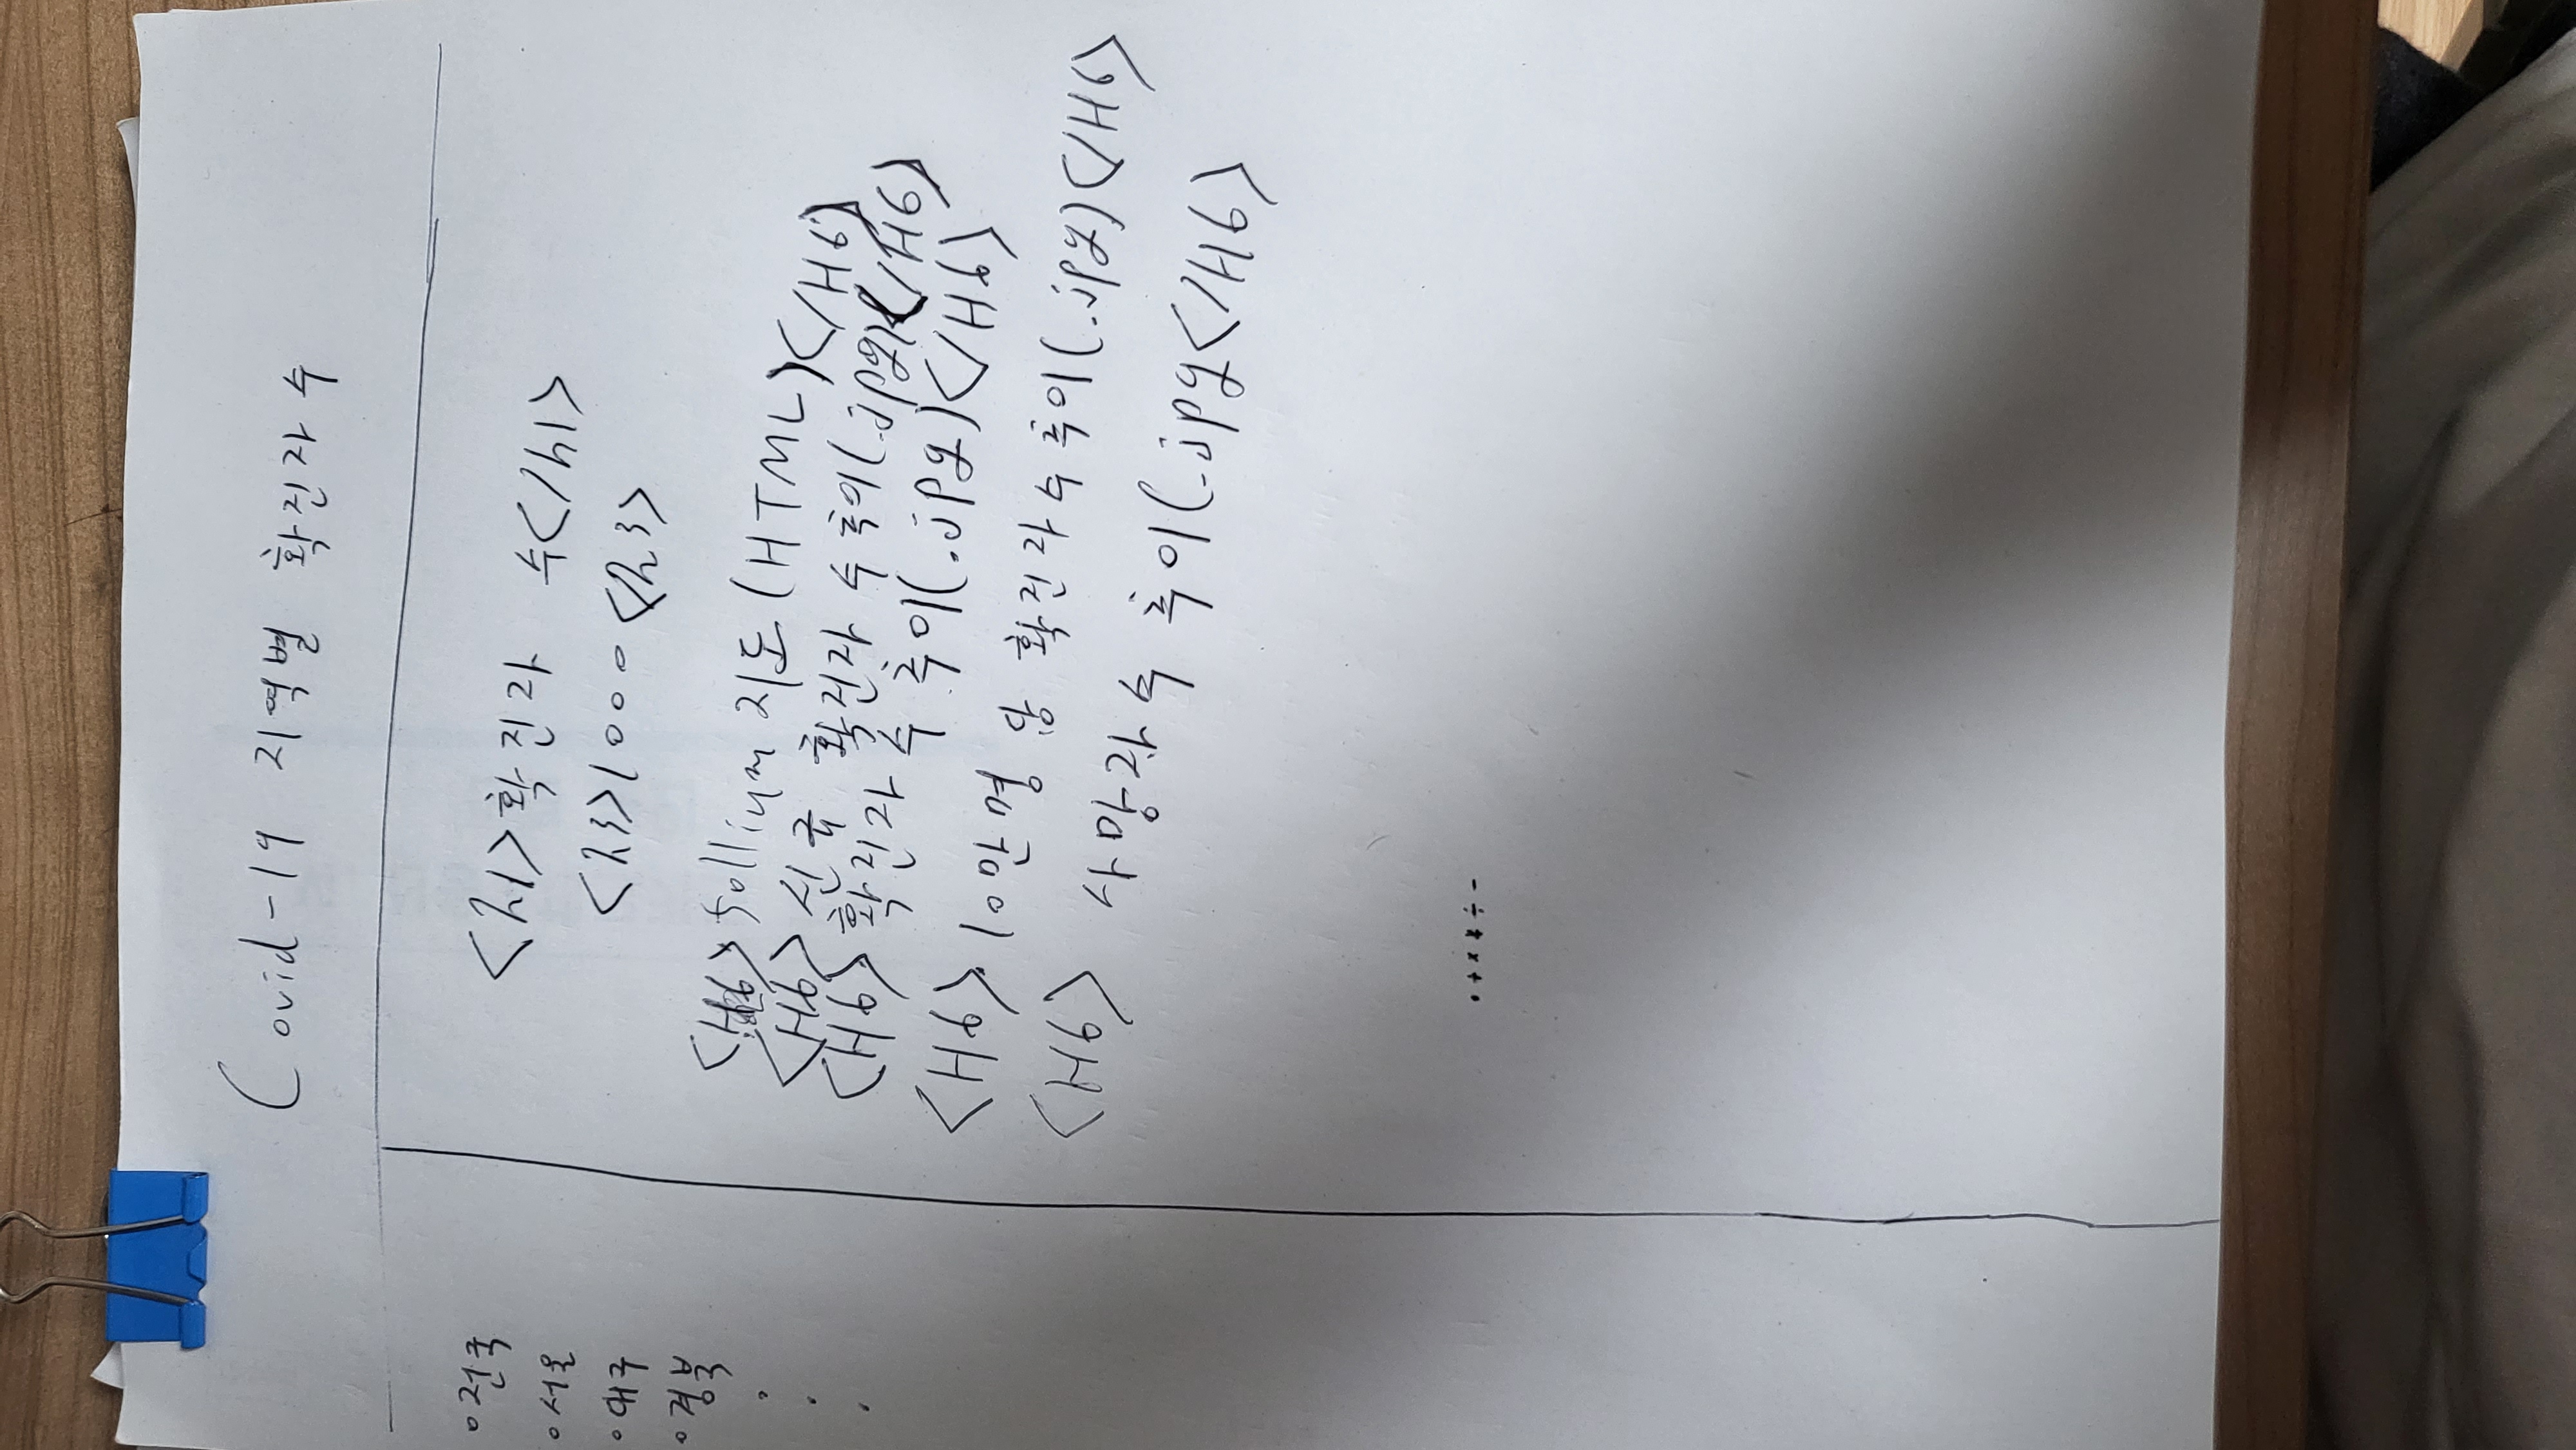 Covid-19 지역별 확진자 수
∘전국
∘서울
∘대구
∘경북
<h1>확진자 수</h1>
<h3>1000</h3>
<H6> follium 지도 (HTML)</H6>
<H6> 신규 확진자 수 추이(.jpg)</H6>
<H6> 확진자 수 추이(.jpg)</H6>
<H6> 10만명 당 확진자 수 추이(.jpg)</H6>
<H6> 사망자 수 추이(.jpg</H6>
• + × * ÷ -